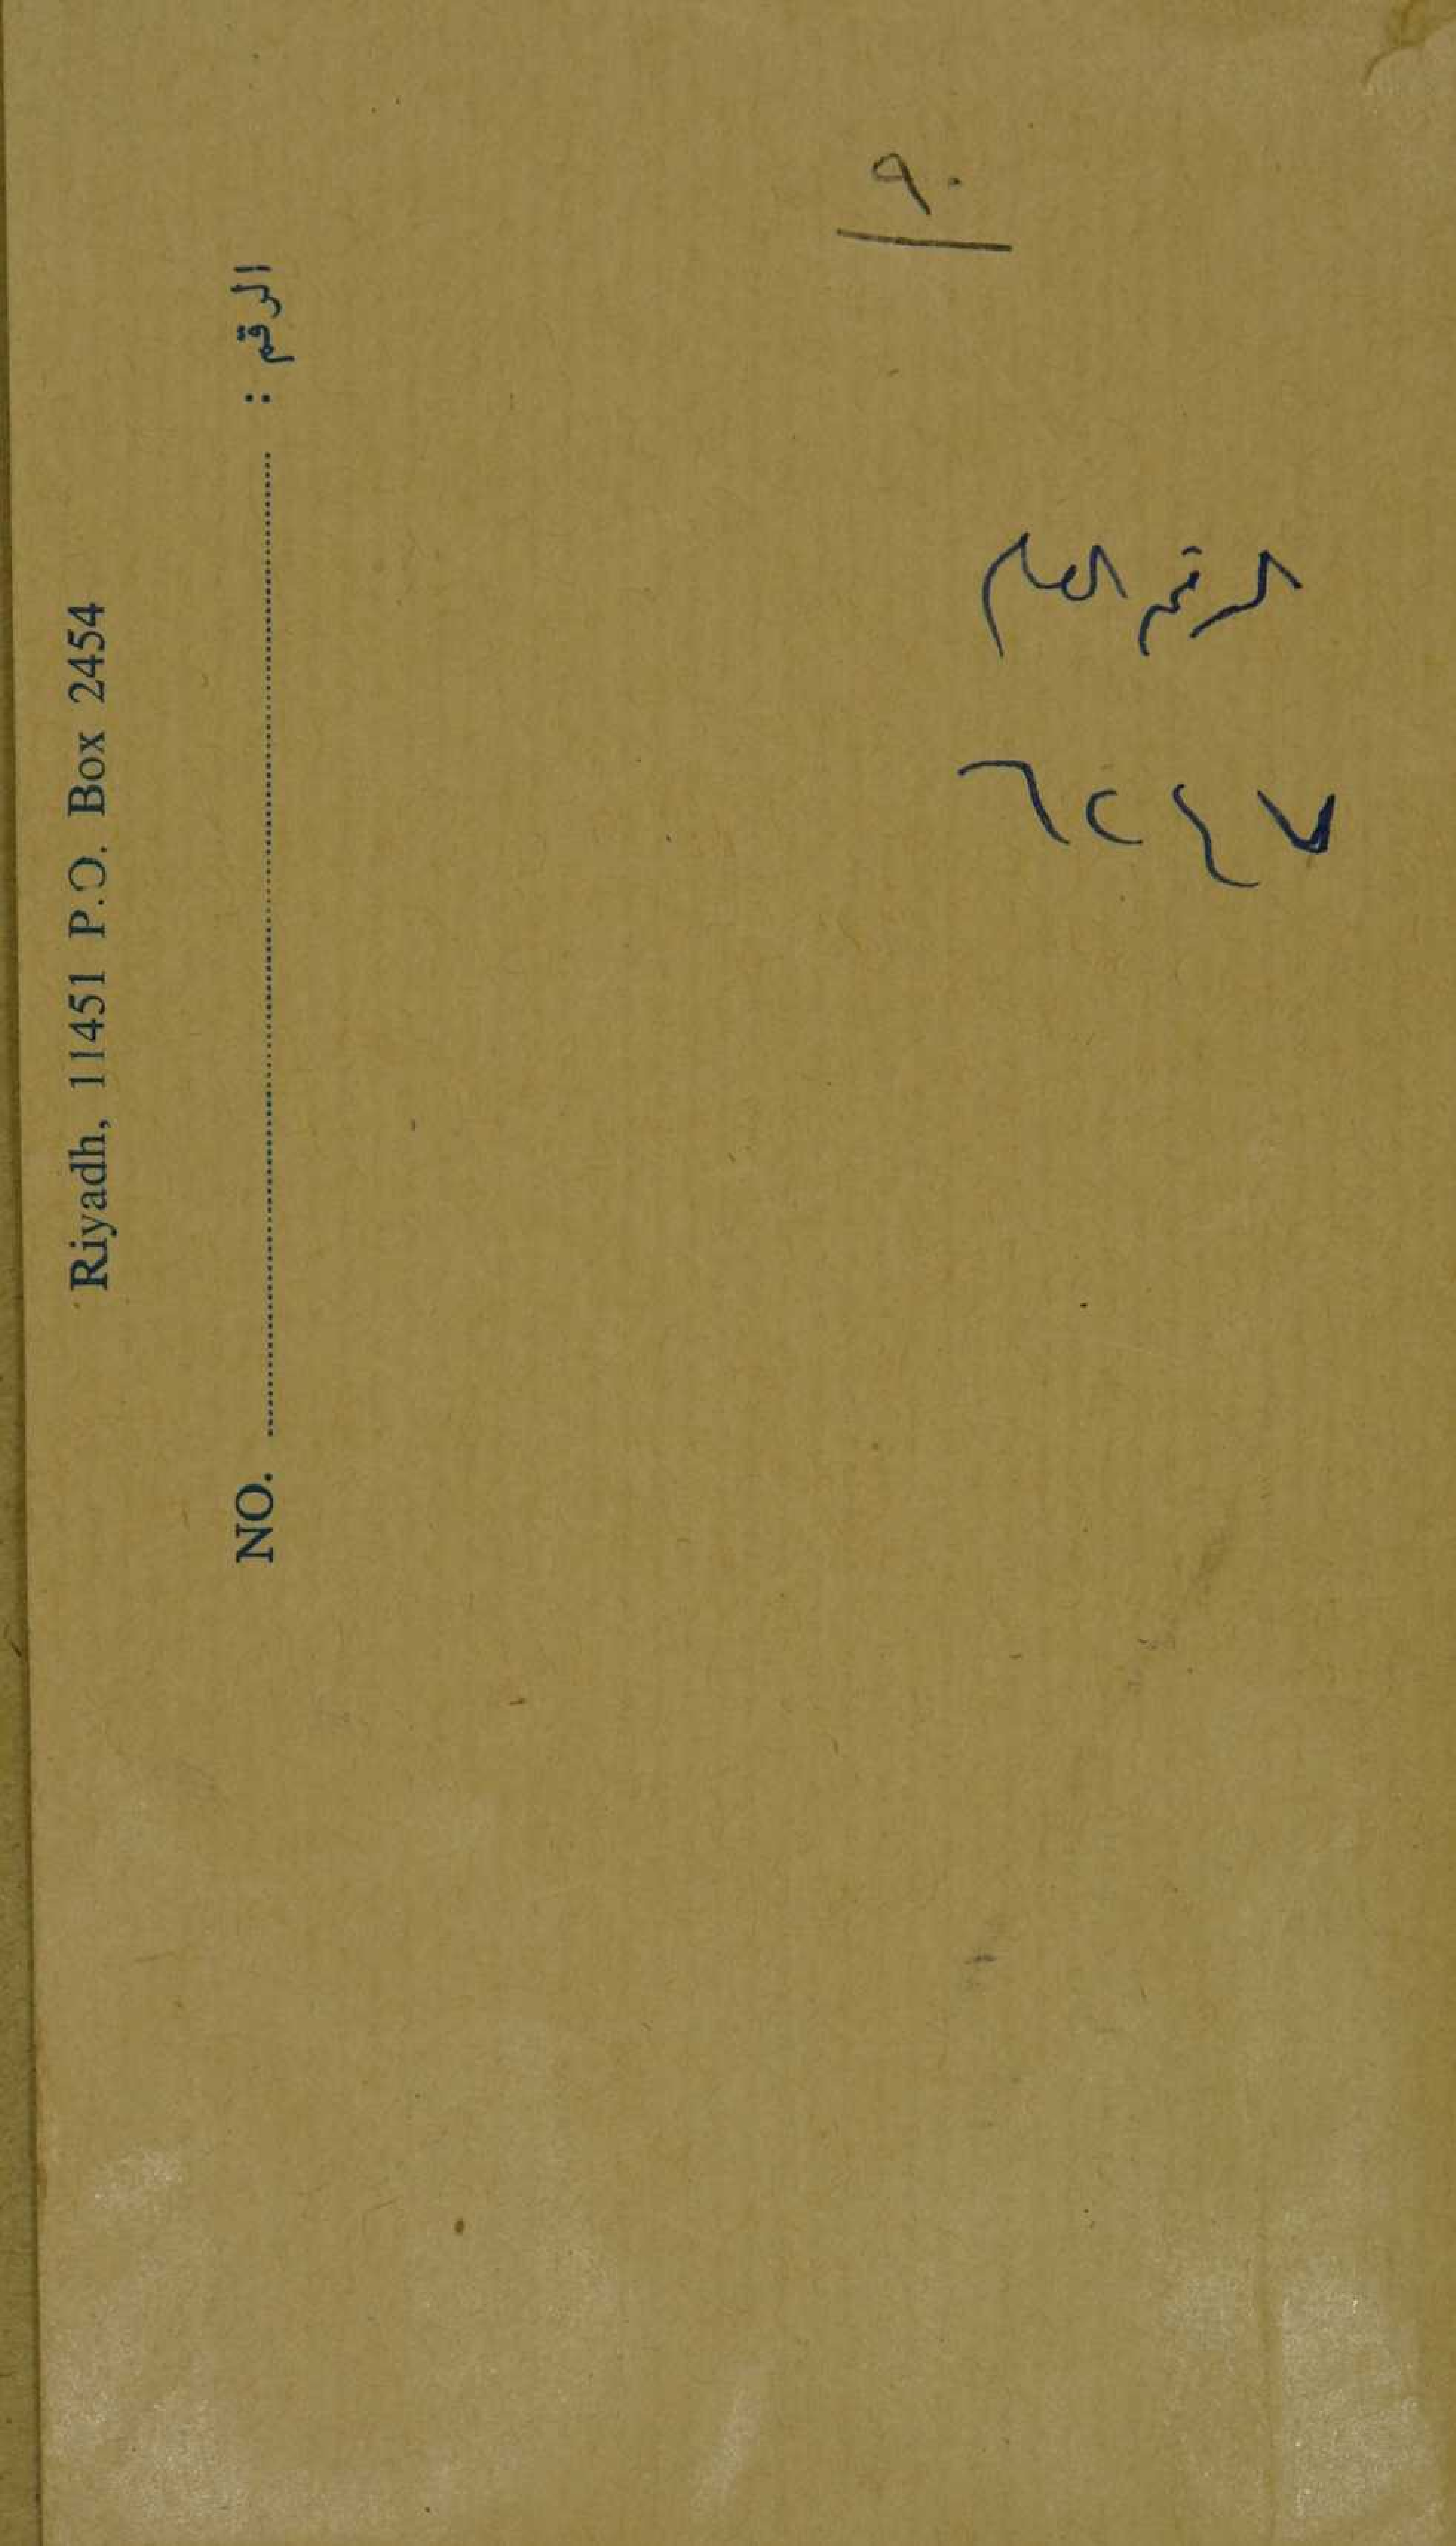 Riyadh, 11451 P.O. Box 2454
NO. ........................ الرقم :
٩٠
الرقم العام
٦٢٤٧